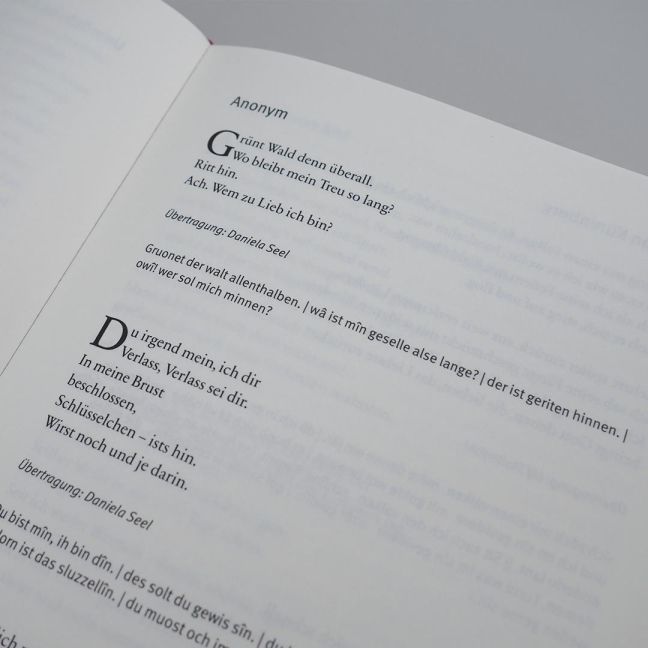 Anonym
Grünt Wald denn überall.
Wo bleibt mein Treu so lang?
Ritt hin.
Ach. Wem zu Lieb ich bin?
Übertragung: Daniela Seel
Gruonet der walt allenthalben. | wâ ist mîn geselle alse lange? | der ist geriten hinnen. |
owî! wer sol mich minnen?
Du irgend mein, ich dir
Verlass, Verlass sei dir.
In meine Brust
beschlossen,
Schlüsselchen – ists hin.
Wirst noch und je darin.
Übertragung: Daniela Seel
Du bist mîn, ih bin dîn. | des solt du gewis sîn. |
ist das sluzzellîn. | du muost och